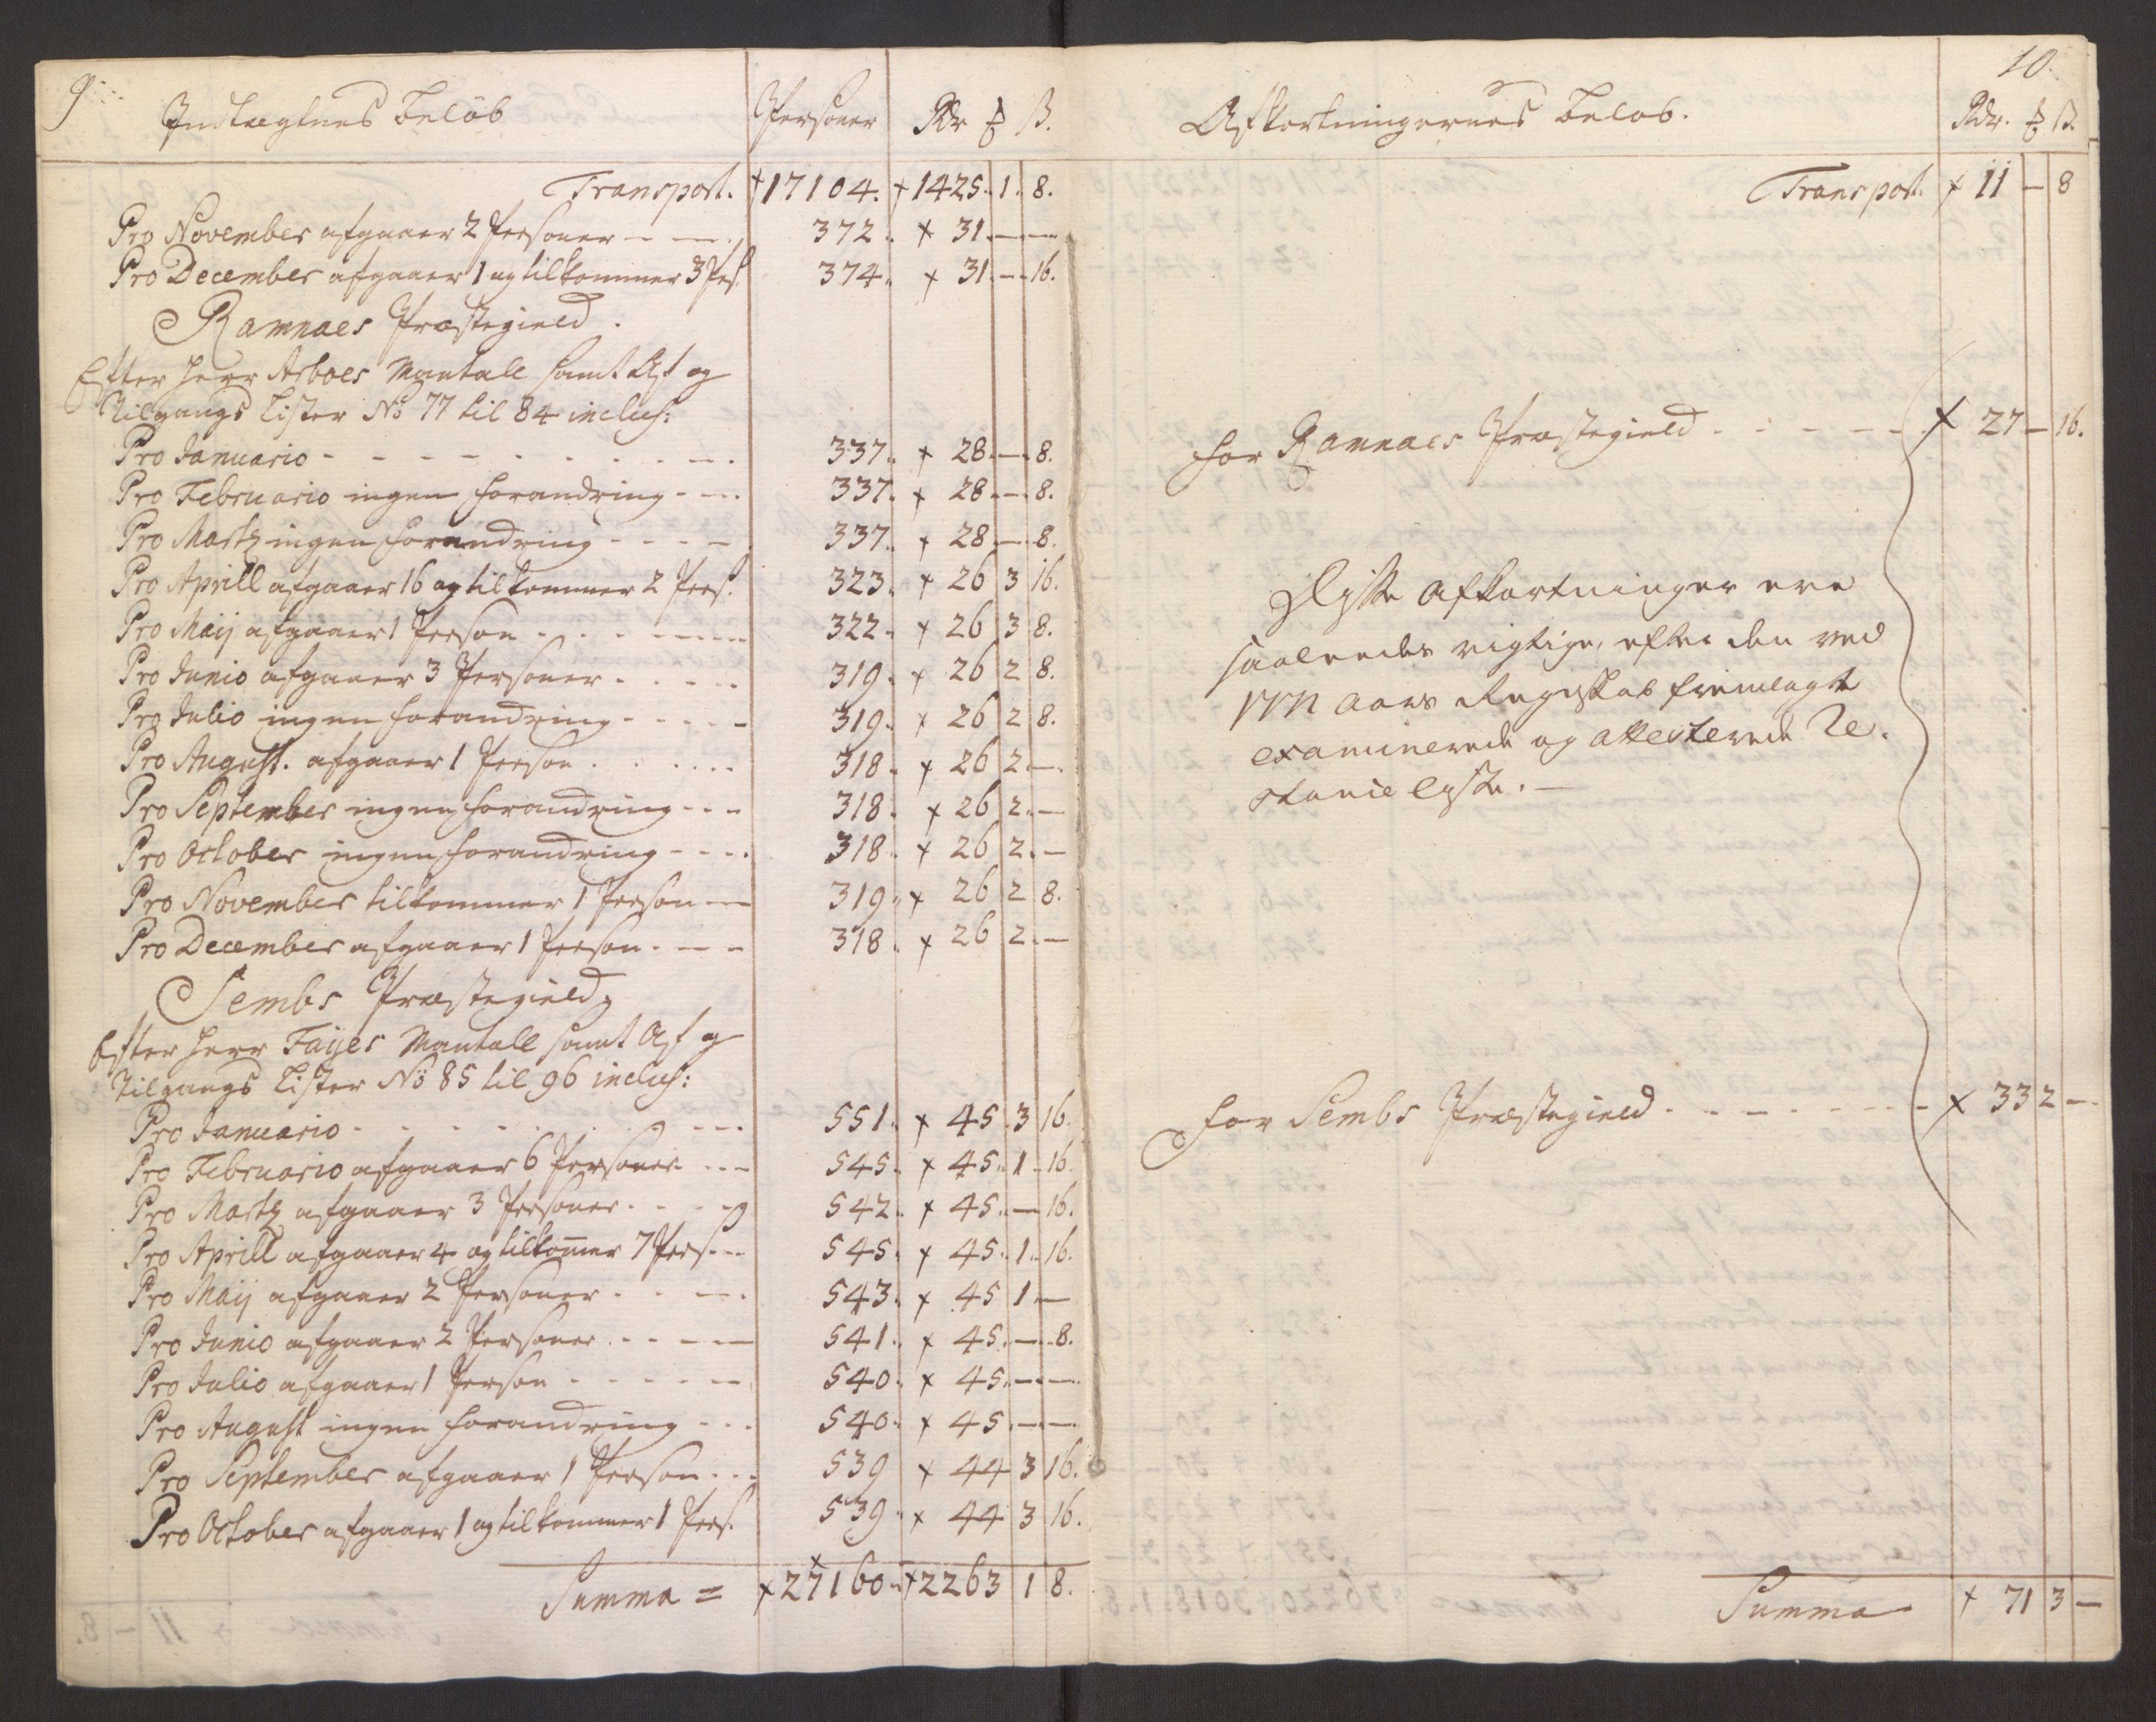 9
Indtægtnes Beløb Personer Rdr ẞ.
Transport. 17104. 1425. 1. 8.
Pro November afgaaer 2 Personer - - 372. 31. - -
Pro December afgaaer 1 og tilkommer 3 Pers: 374. 31. - 16.
Ramnæs Præstegield.
Efter Herr Arboes Mantall samt Af og
Tilgangs Lister No 77 til 84 inclus:
Pro Januario - - - 337. 28. - 8.
Pro Februario ingen Forandring - - 337. 28. - 8.
Pro Martz ingen Forandring - - - 337. 28. - 8.
Pro Aprill afgaaer 16 og tilkommer 2 Pers. 323. 26 3 16.
Pro Maij afgaaer 1 Person - - - 322. 26 3 8.
Pro Junio afgaaer 3 Personer - - - 319. 26 2 8.
Pro Julio ingen Forandring - - - 319. 26 2 8.
Pro August. afgaaer 1 Person - - - 318. 26 2. -
Pro September ingen Forandring - - - 318. 26 2. -
Pro October ingen Forandring - - - 318. 26 2. -
Pro November tilkommer 1 Person - - 319. 26 2 8.
Pro December afgaaer 1 Person - - - 318. 26 2. -
Sembs Præstegield,
Efter Herr Faijes Mantall samt Af og
Tilgangs Lister No 85 til 96 inclus:
Pro Januario - - - 551. 45. 3 16.
Pro Februario afgaaer 6 Personer - - - 545. 45. 1. 16.
Pro Martz afgaaer 3 Personer - - - 542. 45. - 16.
Pro Aprill afgaaer 4 og tilkom̅er 7 Pers - - 545. 45. 1. 16.
Pro Maij afgaaer 2 Personer - - - 543. 45 1 -
Pro Junio afgaaer 2 Personer - - - 541. 45. - 8.
Pro Julio afgaaer 1 Person - - - 540. 45. - -
Pro August ingen Forandring - - - 540. 45. - -
Pro September afgaaer 1 Person - - - 539 44 3 16.
Pro October afgaaer 1 og tilkommer 1 Pers. 539. 44 3 16.
Summa = 27160. 2263 1 8.
10.
Afkortningernes Beløb. Rdr. ẞ.
Transport. 11 - 8
For Ramnæs Præstegield - - - 27 - 16.
Disse Afkortninger ere
saaledes rigtige, efter den ved
Aars Regnskab fremlagte
examinerede og attesterede Re-
stance liste. -
For Sembs Præstegield - - - 33 2 -
Summa 71 3 -